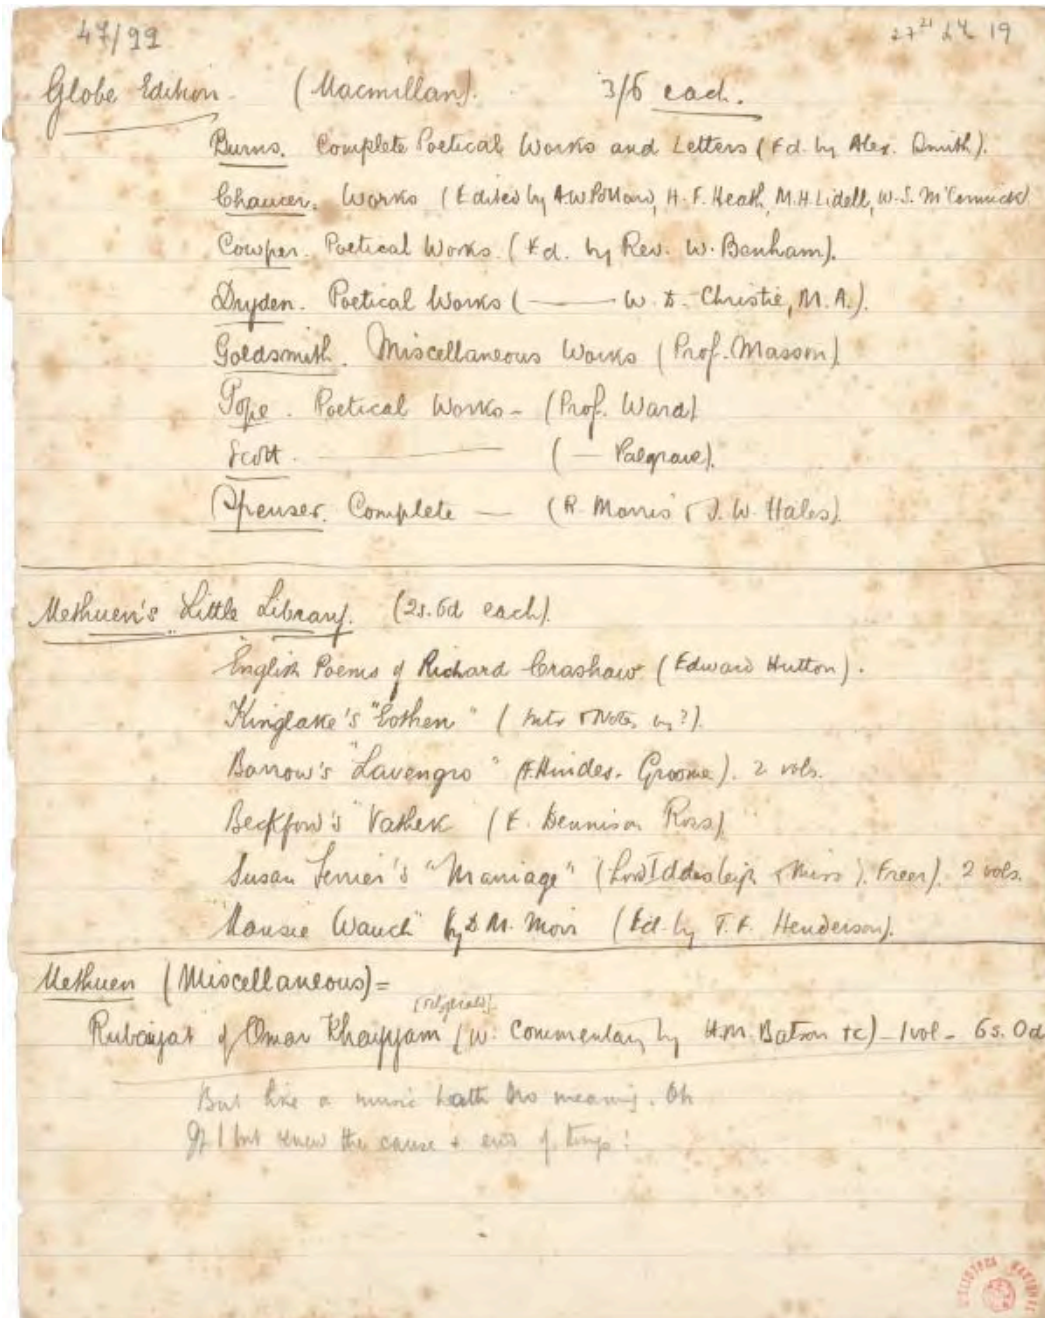 47/99
27 21 19
Globe Edition. (Macmillan). 3/6 each.
Burns. Complete Poetical Works and Letters (Ed. by Alex. Smith).
Chaucer. Works (Edited by A.W. Pollard, H.F. Heath, M.H. Lidell, W.S. McCormick)
Cowper. Poetical Works. (Ed. by Rev. W. Benham).
Dryden. Poetical Works (——— W.D. Christie, M.A.).
Goldsmith. Miscellaneous Works (Prof. Masson)
Pope. Poetical Works - (Prof. Ward)
Scott. ——— (— Palgrave).
Spenser. Complete — (R. Morris & J.W. Hales).
Methuen's Little Library. (2s.6d each).
English Poems of Richard Crashaw (Edward Hutton).
Kinglake's "Eothen" (Intr & Notes by?).
Borrow's "Lavengro" (F. Hindes. Groome). 2 vols.
Beckford's "Vathek (E. Dennison Ross)
Susan Ferrier's "Marriage" (Lord Iddesleigh & Miss Freer). 2 vols.
"Mansie Wauch" by D.M. Moir (Ed. by T.F. Henderson).
Methuen (Miscellaneous) =
(Fitzgerald).
Rubaiyat of Omar Khayyam (w. Commentary by H.M. Batson &c) - 1 vol - 6s. 0d
But like a music hath no meaning. Oh
If I but knew the cause + end of things!
BIBLIOTECA NACIONAL